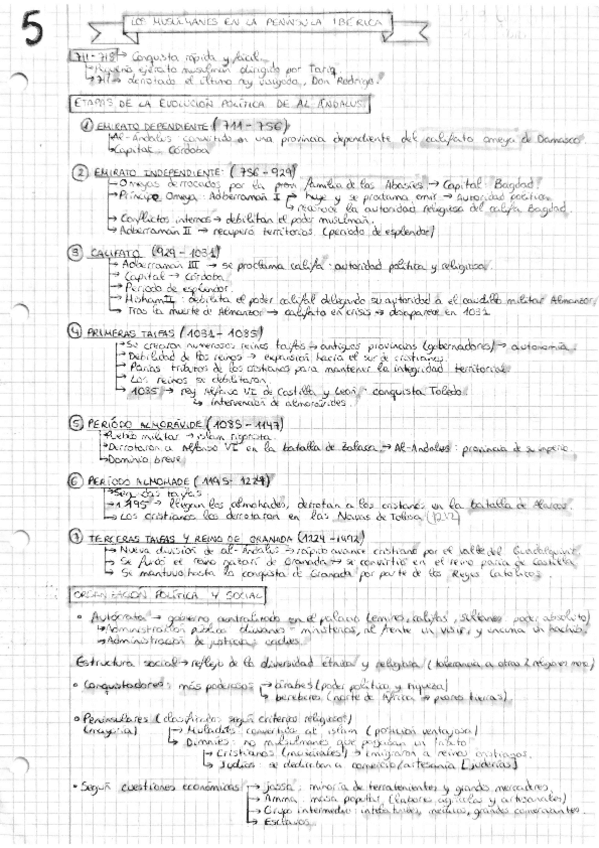 5
LOS MUSULMANES EN LA PENÍNSULA IBÉRICA
711-718 → Conquista rápida y fácil.
→ Pequeño ejército musulmán dirigido por Tariq
→ 711 → derrotado el último rey visigodo, Don Rodrigo.
ETAPAS DE LA EVOLUCIÓN POLÍTICA DE AL-ÁNDALUS
① EMIRATO DEPENDIENTE (711-756)
→ Al-Ándalus convertido en una provincia dependiente del califato omeya de Damasco
→ Capital: Córdoba
② EMIRATO INDEPENDIENTE: (756-929)
→ Omeyas derrocados por la familia de los Abasíes → Capital: Bagdad.
→ Príncipe Omeya: Adberramán I → huye y se proclama emir → Autoridad política
→ reconoce la autoridad religiosa del califa Bagdad.
→ Conflictos internos → debilitan el poder musulmán.
→ Adberramán II → recuperó territorios (período de esplendor)
③ CALIFATO (929-1031)
→ Adberramán III → se proclama califa: autoridad política y religiosa.
→ Capital → Córdoba
→ Período de esplendor.
→ Hisham II: debilita el poder califal delegando su autoridad a el caudillo militar Almanzor
→ Tras la muerte de Almanzor → califato en crisis → desaparece en 1031
④ PRIMERAS TAIFAS (1031-1085)
→ Se crearon numerosos reinos taifas → antiguas provincias (gobernadores) → autonomía
→ Debilidad de los reinos → expansión hacia el sur de cristianos.
→ Parias: tributos de los cristianos para mantener la integridad territorial
→ Los reinos se debilitaron
→ 1085 → rey Alfonso VI de Castilla y León, conquista Toledo.
→ intervención de almorávides.
⑤ PERÍODO ALMORÁVIDE (1085-1147)
→ Pueblo militar → islam rigorista.
→ Derrotaron a Alfonso VI en la batalla de Zalaca → Al-Andalus: provincia de su imperio.
→ Dominio breve
⑥ PERÍODO ALMOHADE (1145-1224)
→ Segundas taifas
→ 1195 → llegan los almohades, derrotan a los cristianos en la batalla de Alarcos.
→ Los cristianos los derrotaron en las Navas de Tolosa (1212)
⑦ TERCERAS TAIFAS Y REINO DE GRANADA (1224-1492)
→ Nueva división de al-Ándalus → rápido avance cristiano por el valle del Guadalquivir
→ Se fundó el reino nazarí de Granada → se convirtió en el reino paria de Castilla
→ Se mantuvo hasta la conquista de Granada por parte de los Reyes Católicos.
ORGANIZACIÓN POLÍTICA Y SOCIAL
• Autócrata → gobierno centralizado en el palacio (emires, califas, sultanes: poder absoluto)
→ Administración pública: divanes - ministerios, al frente un visir, y encima un hachib.
→ Administración de justicia: cadíes.
Estructura social → reflejo de la diversidad étnica y religiosa (tolerancia a otras religiones)
• Conquistadores: más poderosos → árabes (poder político y riqueza)
→ bereberes (norte de África → peores tierras).
• Peninsulares (clasificados según criterios religiosos)
(mayoría) → Muladíes: convertidos al islam (posición ventajosa)
→ Dimmíes: no musulmanes que pagaban un tributo
→ Cristianos (mozárabes) → Emigraron a reinos cristianos.
→ Judíos: se dedicaban a comercio/artesanía [juderías]
• Según cuestiones económicas → jassa: minoría de terratenientes y grandes mercaderes.
→ Amma: masa popular (labores agrícolas y artesanales)
→ Grupo intermedio: intelectuales, médicos, grandes comerciantes.
→ Esclavos.